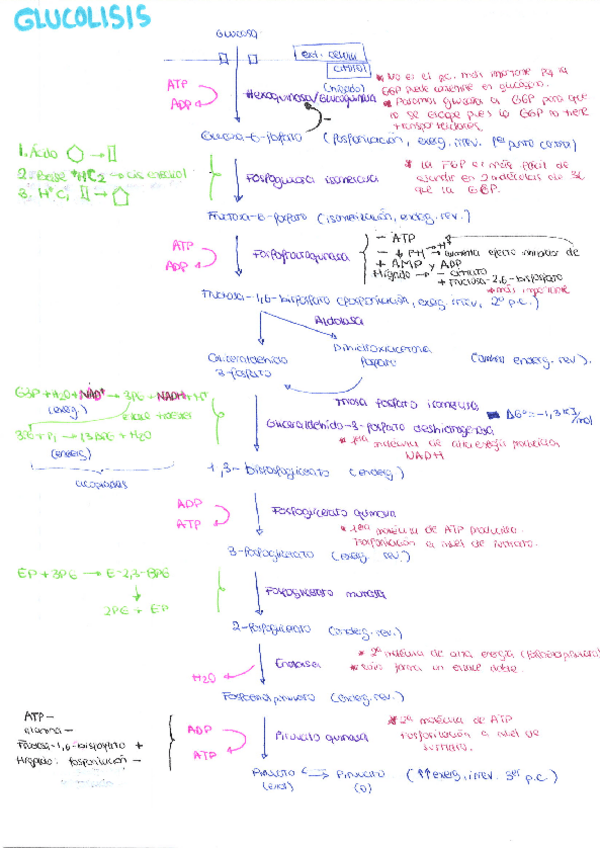 GLUCOLISIS
GLUCOSA
ext. celular
CITOSOL
ATP
ADP
(hígado)
Hexoquinasa/Glucoquinasa
* No es el p.c. más importante pq la
G6P puede convertirse en glucógeno.
* Pasamos glucosa a G6P para que
no se escape pues la G6P no tiene
transportadores.
Glucosa-6-fosfato (fosforilación, exerg. irrev. 1er punto control)
1. Ácido
2. Base
cis enodiol
Fosfoglucosa isomerasa
* La F6P es más fácil de
escindir en 2 moléculas de 3C
que la G6P.
Fructosa-6-fosfato (isomerización, enderg. rev.)
ATP
ADP
Fosfofructoquinasa
- ATP
- ↓ PH → aumenta efecto inhibidor de
+ AMP y ADP
Hígado → - citrato
+ Fructosa-2,6-bisfosfato
* más importante
Fructosa-1,6-bisfosfato (fosforilación, exerg. irrev. 2º p.c.)
Aldolasa
Gliceraldehido
3-fosfato
Dihidroxiacetona
fosfato
enderg. rev.)
Triosa fosfato isomerasa
G3P + H2O + NAD+ → 3PG + NADH + H+
(exerg.)
3PG + Pi → 1,3BPG + H2O
(enderg)
acopladas
Gliceraldehido-3-fosfato deshidrogenasa
* 1ª molécula de alta energía producida
NADH
1,3-bisfosfoglicerato (enderg)
ADP
ATP
Fosfoglicerato quinasa
* 1ª molécula de ATP producida.
Fosforilación a nivel de sustrato.
3-fosfoglicerato (exerg. rev.)
EP + 3PG → E-2,3-BPG
2PG + EP
Fosfoglicerato mutasa
2-fosfoglicerato (enderg. rev.)
H2O
Enolasa
* 2ª molécula de alta energía (fosfoenolpiruvato)
enlace doble.
Fosfoenolpiruvato (enderg. rev.)
ATP -
alanina -
Fructosa-1,6-bisfosfato +
Hígado: fosforilación -
ADP
ATP
Piruvato quinasa
* 2ª molécula de ATP
Fosforilación a nivel de
sustrato.
Piruvato ⟷ Piruvato (↑↑ exerg, irrev. 3er p.c.)
(enol)